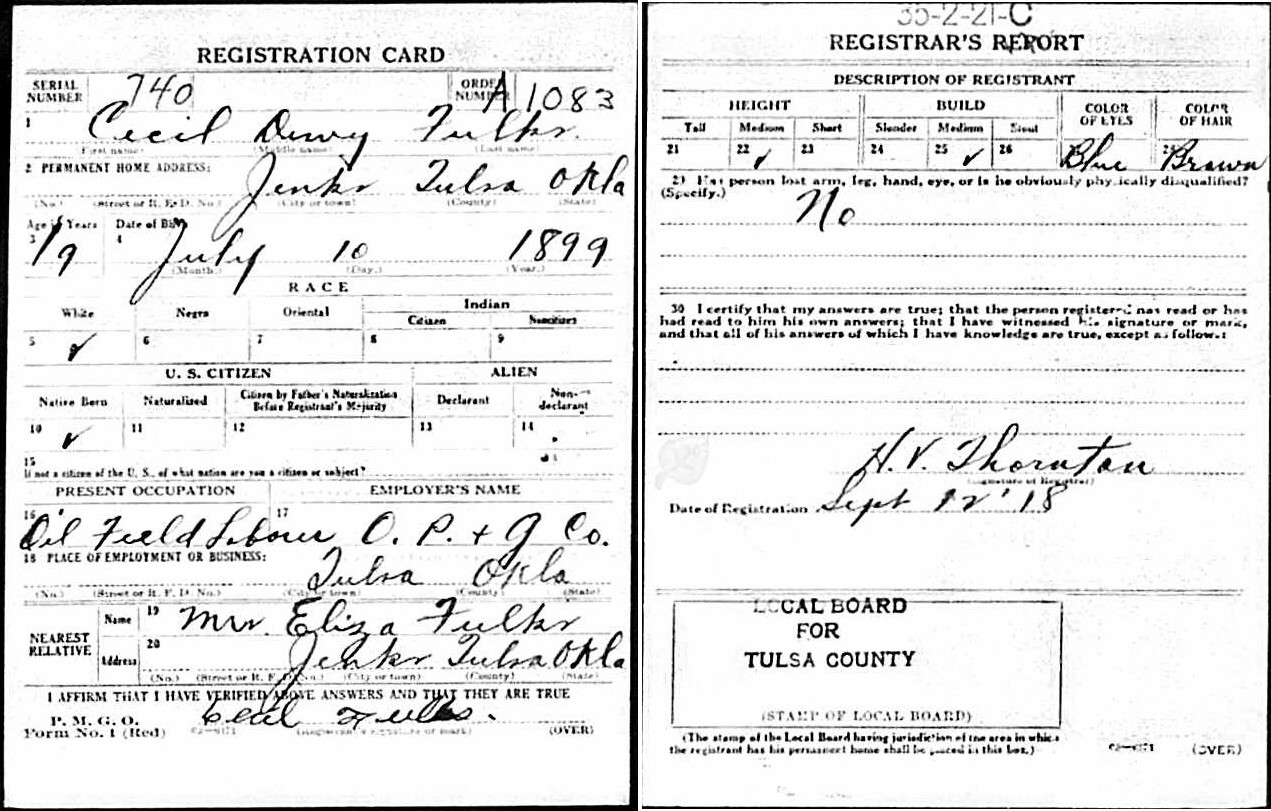 REGISTRATION CARD
SERIAL NUMBER 740 ORDER NUMBER A 1083
1 Cecil Dewy Fulks
(First name) (Middle name) (Last name)
2 PERMANENT HOME ADDRESS:
Jenks Tulsa Okla
(No.) (Street or R. F. D. No.) (City or town) (County) (State)
Age in Years Date of Birth
3 19 4 July 10 1899
(Month.) (Day.) (Year.)
RACE
White Negro Oriental Indian
Citizen Noncitizen
5 ✓ 6 7 8 9
U. S. CITIZEN ALIEN
Native Born Naturalized Citizen by Father's Naturalization Before Registrant's Majority Declarant Non-declarant
10 ✓ 11 12 13 14
15
If not a citizen of the U. S., of what nation are you a citizen or subject?
PRESENT OCCUPATION EMPLOYER'S NAME
16 Oil Field Laborer 17 O. P. + G Co.
18 PLACE OF EMPLOYMENT OR BUSINESS:
Tulsa Okla
(No.) (Street or R. F. D. No.) (City or town) (County) (State)
NEAREST RELATIVE Name 19 Mrs. Eliza Fulks
Address 20 Jenks Tulsa Okla
(No.) (Street or R. F. D. No.) (City or town) (County) (State)
I AFFIRM THAT I HAVE VERIFIED ABOVE ANSWERS AND THAT THEY ARE TRUE
P. M. G. O.
Form No. 1 (Red) Cecil Fulks. (OVER)
35-2-21-C
REGISTRAR'S REPORT
DESCRIPTION OF REGISTRANT
HEIGHT BUILD COLOR OF EYES COLOR OF HAIR
Tall Medium Short Slender Medium Stout
21 22 ✓ 23 24 25 ✓ 26 Blue 28 Brown
29 Has person lost arm, leg, hand, eye, or is he obviously physically disqualified?
(Specify.) No
30 I certify that my answers are true; that the person registered has read or has
had read to him his own answers; that I have witnessed his signature or mark,
and that all of his answers of which I have knowledge are true, except as follows:
H. V. Thornton
(Signature of Registrar)
Date of Registration Sept 12 ' 18
LOCAL BOARD
FOR
TULSA COUNTY
(STAMP OF LOCAL BOARD)
(The stamp of the Local Board having jurisdiction of the area in which
the registrant has his permanent home shall be placed in this box.) (OVER)